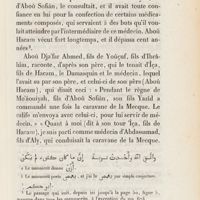 d'Aboû Sofiân, le consultait, et il avait toute confiance
en lui pour la confection de certains médicaments
composés, qui servaient à des buts qu'il voulait
atteindre par l'intermédiaire de ce médecin. Aboû
Hacam vécut fort longtemps, et il dépassa cent années
Aboû Dja'far Ahmed, fils de Yoûçuf, fils d'Ibrâhîm,
raconte, d'après son père, qui le tenait d'Îça,
fils de Hacam, le Damasquin et le médecin, lequel
l'avait su par son père, et celui-ci de son père (Aboû
Hacam), qui disait ceci : « Pendant le règne de
Mo'âouiyah, fils d'Aboû Sofiân, son fils Yazîd a
commandé une fois la caravane de la Mecque. Ce
calife m'envoya avec celui-ci, pour lui servir de médecin.
» Quant à moi (dit à son tour Îça, fils de
Hacam), je suis parti comme médecin d'Abdassamad,
fils d'Aly, qui conduisait la caravane de la Mecque.
Le manuscrit donne
Le manuscrit porte
Ce passage qui suit, depuis ici jusqu'à la page